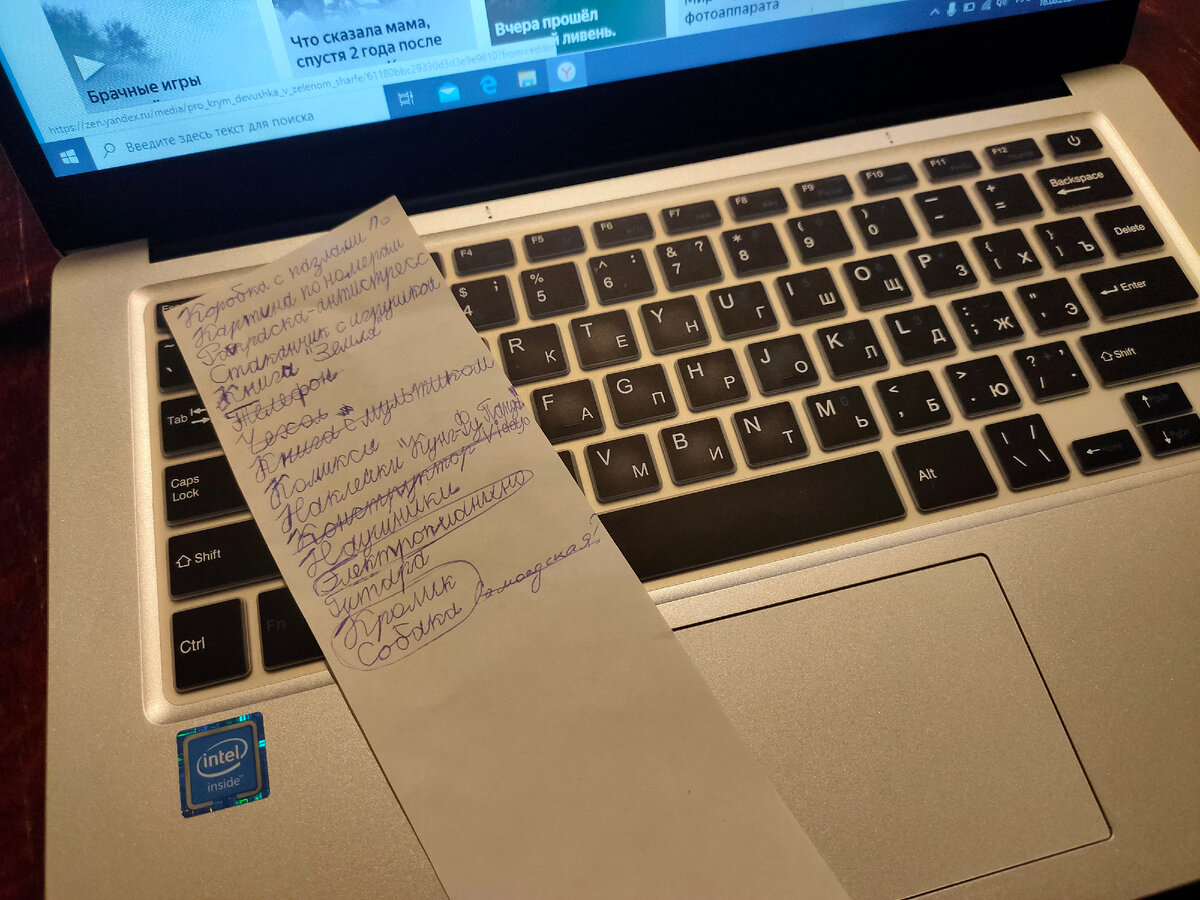 Что сказала мама,
спустя 2 года после
Вчера прошёл
ливень.
фотоаппарата
Брачные игры
https://zen.yandex.ru/media/pro_krym_devushka_v_zelenom_sharfe/61180bbc29330d3d3e9e9810?from=editor
Введите здесь текст для поиска
Коробка с пазлами По
Картина по номерам
Раскраска-антистресс
Стаканчик с игрушкой
Книга "Земля"
Телефон
Чехол
Книга с мультиком
Комиксы "Кунг-Фу Панда"
Наклейки Video
Конструктор
Наушники
Электропианино
Гитара
Кролик
Собака Самоедская?
F4 F5 F6 F7 F8 F9 F10 F11 F12
$ 4 ; % 5 ^ 6 : & 7 ? * 8 ( 9 ) 0 _ - + = Backspace
Tab R К T Е Y Н U Г I Ш O Щ P З { [ Х } ] Ъ Delete
Caps Lock F А G П H Р J О K Л L Д : ; Ж " ' Э Enter
Shift V М B И N Т M Ь < , Б > . Ю ? / Shift
Ctrl Fn Alt | / \ \
intel
inside™